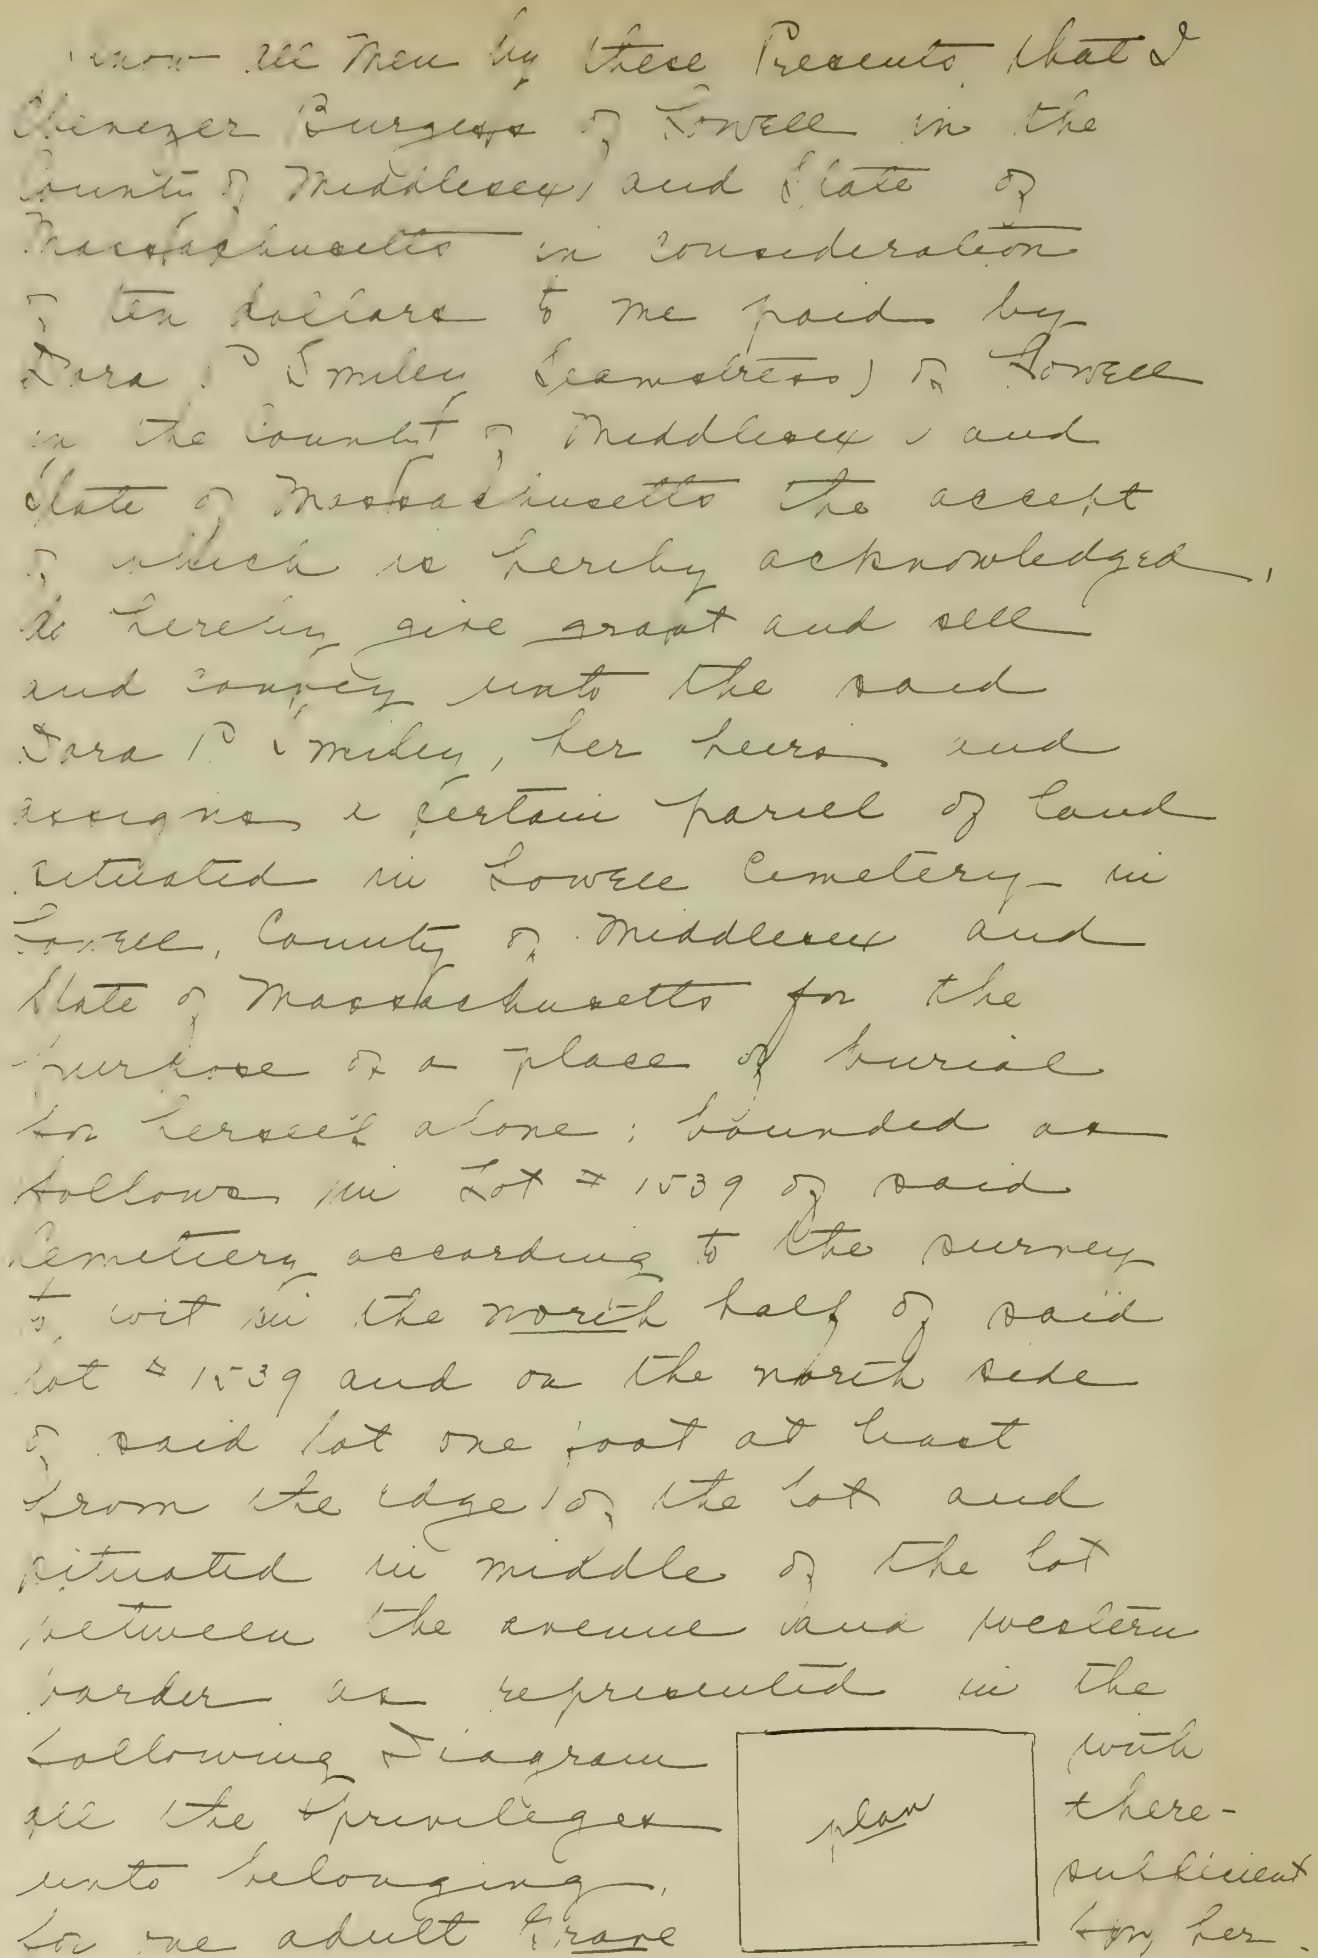 Know all Men by these Presents, that I
Ebenezer Burgess of Lowell in the
County of Middlesex, and State of
Massachusetts in consideration
of ten dollars to me paid by
Dora P Smiley Seamstress) of Lowell
in the County of Middlesex, and
State of Massachusetts the accept
of which is hereby acknowledged,
do hereby give grant and sell
and convey unto the said
Dora P Smiley, her heirs and
assigns a certain parcel of land
situated in Lowell Cemetery in
Lowell, County of Middlesex and
State of Massachusetts for the
purpose of a place of burial
for herself alone; bounded as
follows in Lot # 1539 of said
Cemetiery according to the survey
to wit in the north half of said
lot # 1539 and on the north side
of said lot one foot at least
from the edge of the lot and
situated in middle of the lot
between the avenue and western
border as represented in the
following Diagram with
all the privileges there-
plan
unto belonging, sufficient
for one adult Grave for her.